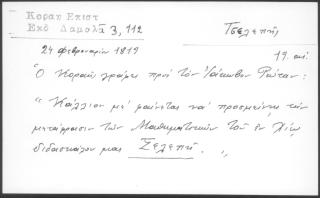 Κοραη Επιστ
Εκδ Δαμαλᾶ 3, 112
Τσελεπῆς
24 Φεβρουαρίου 1819
19. αἰ.
Ὁ Κοραῆς γράφει πρὸς τὸν Ἰάκωβον Ρώταν:
"Κάλλιον μὲ φαίνεται νὰ προσμείνῃς τὴν
μετάφρασιν τῶν Μαθηματικῶν τοῦ ἐν Χίῳ
διδασκάλου μας Τζελεπῆ. „